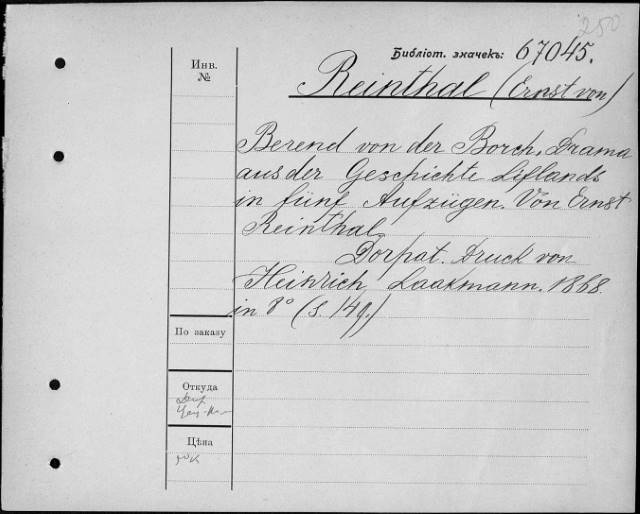 250
Библіот. значекъ: 67045.
Инв.
№
Reinthal (Ernst von)
Berend von der Borch, Drama
aus der Geschichte Liflands
in fünf Aufzügen. Von Ernst
Reinthal.
Dorpat. Druck von
Heinrich Laakmann. 1868.
in 8° (S. 149.)
По заказу
Откуда
Цѣна